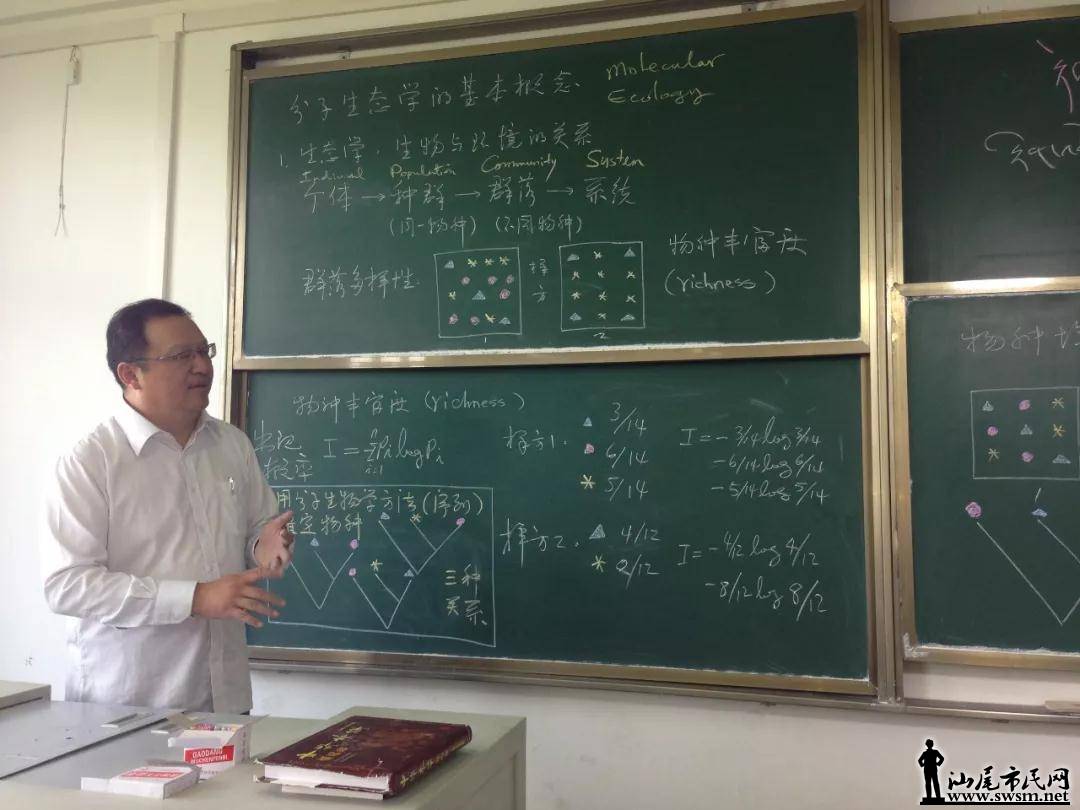 分子生态学的基本概念
Molecular
Ecology
1. 生态学：生物与环境的关系
Population Community System
个体 → 种群 → 群落 → 系统
(同一物种) (不同物种)
群落多样性
样方
1
2
物种丰富度
(richness)
物种丰富度 (richness)
出现
概率
用分子生物学方法(序列)
确定物种
三种
关系
样方1.
3/14
6/14
5/14
I = - 3/14 log 3/14
- 6/14 log 6/14
- 5/14 log 5/14
样方2.
4/12
8/12
I = - 4/12 log 4/12
- 8/12 log 8/12
物种
1
GAODANG
汕尾市民网
www.swsm.net